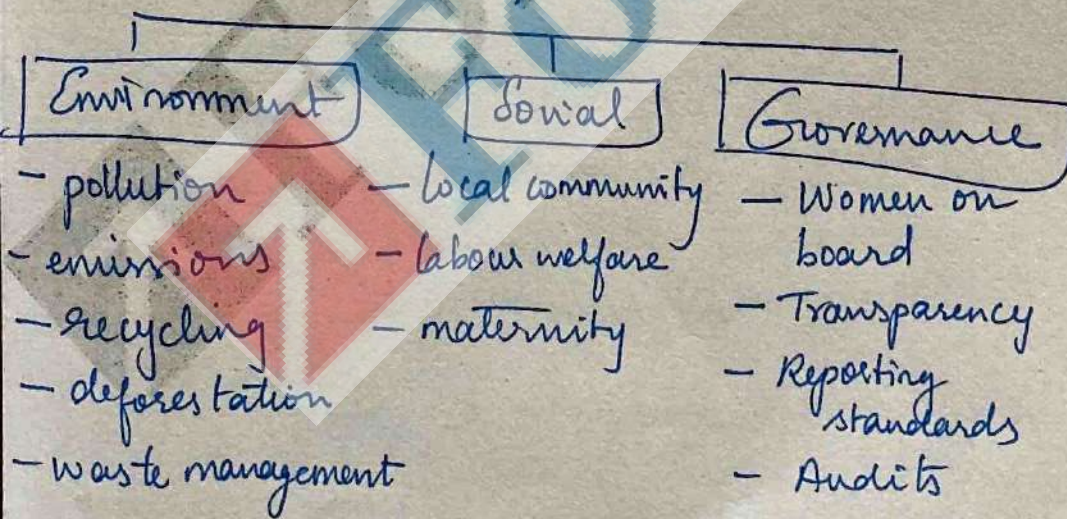 Environment
Social
Governance
- pollution
- emissions
- recycling
- deforestation
- waste management
- local community
- labour welfare
- maternity
- Women on
board
- Transparency
- Reporting
standards
- Audits